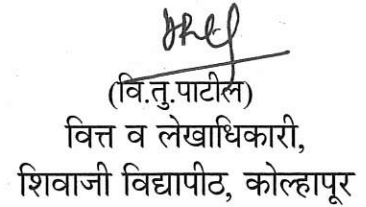 (वि.तु.पाटील)
वित्त व लेखाधिकारी,
शिवाजी विद्यापीठ, कोल्हापूर